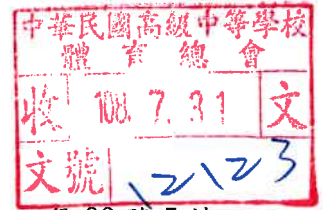 中華民國高級中等學校
體育總會
收 108. 7. 31 文
文號 12123